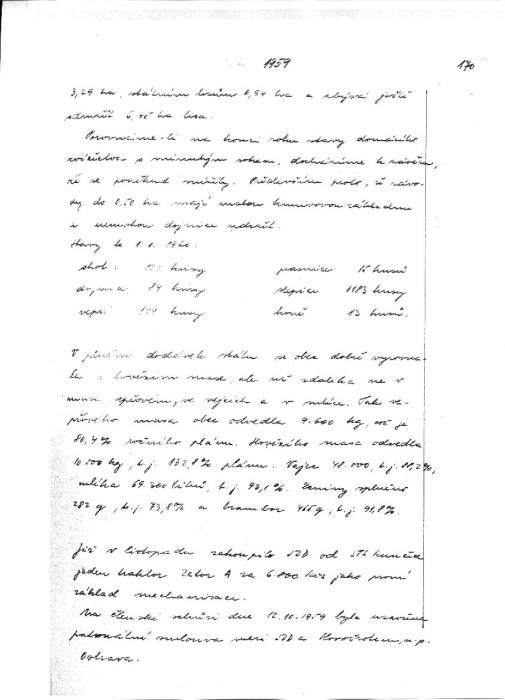 1959 170
3,29 ha, státním lesům 0,54 ha a zbývá ještě
6,45 ha lesa.
Porovnáme-li na konci roku stavy domácího
zvířectva s minulým rokem, docházíme k závěru,
že se poněkud snížily. Především proto, že závo-
dy do 0,50 ha mají malou krmivovou základnu
a nemohou dojnice udržet.
Stavy k 1. 1. 1960:
skot: kusy prasnice 15 kusů
dojnice 84 kusy slepice 1183 kusy
vepři kusy koně 13 kusů.
V plnění dodávek státu se obec dobře vyrovna-
la s hovězím masem, ale už zdaleka ne v
mase vepřovém, ve vejcích a v mléce. Tak ve-
přového masa obec odvedla 9.600 kg, což je
80,4% ročního plánu. Hovězího masa odvedla
10.500 kg, t.j. 132,8% plánu. Vejce 48.000, t.j. 81,2%,
mléka 69.300 litrů, t.j. 92,1%. Zeniny splněno
282 q, t.j. 73,8% a brambor 455 q, t.j. 91,8%.
Již v listopadu zakoupilo JZD od STS Kunčice
jeden traktor Zetor A za 6.800 kčs jako první
základ mechanisace.
Na členské schůzi dne 12.10.1959 byla uzavřena
patronátní smlouva mezi JZD a n.p.
Ostrava.